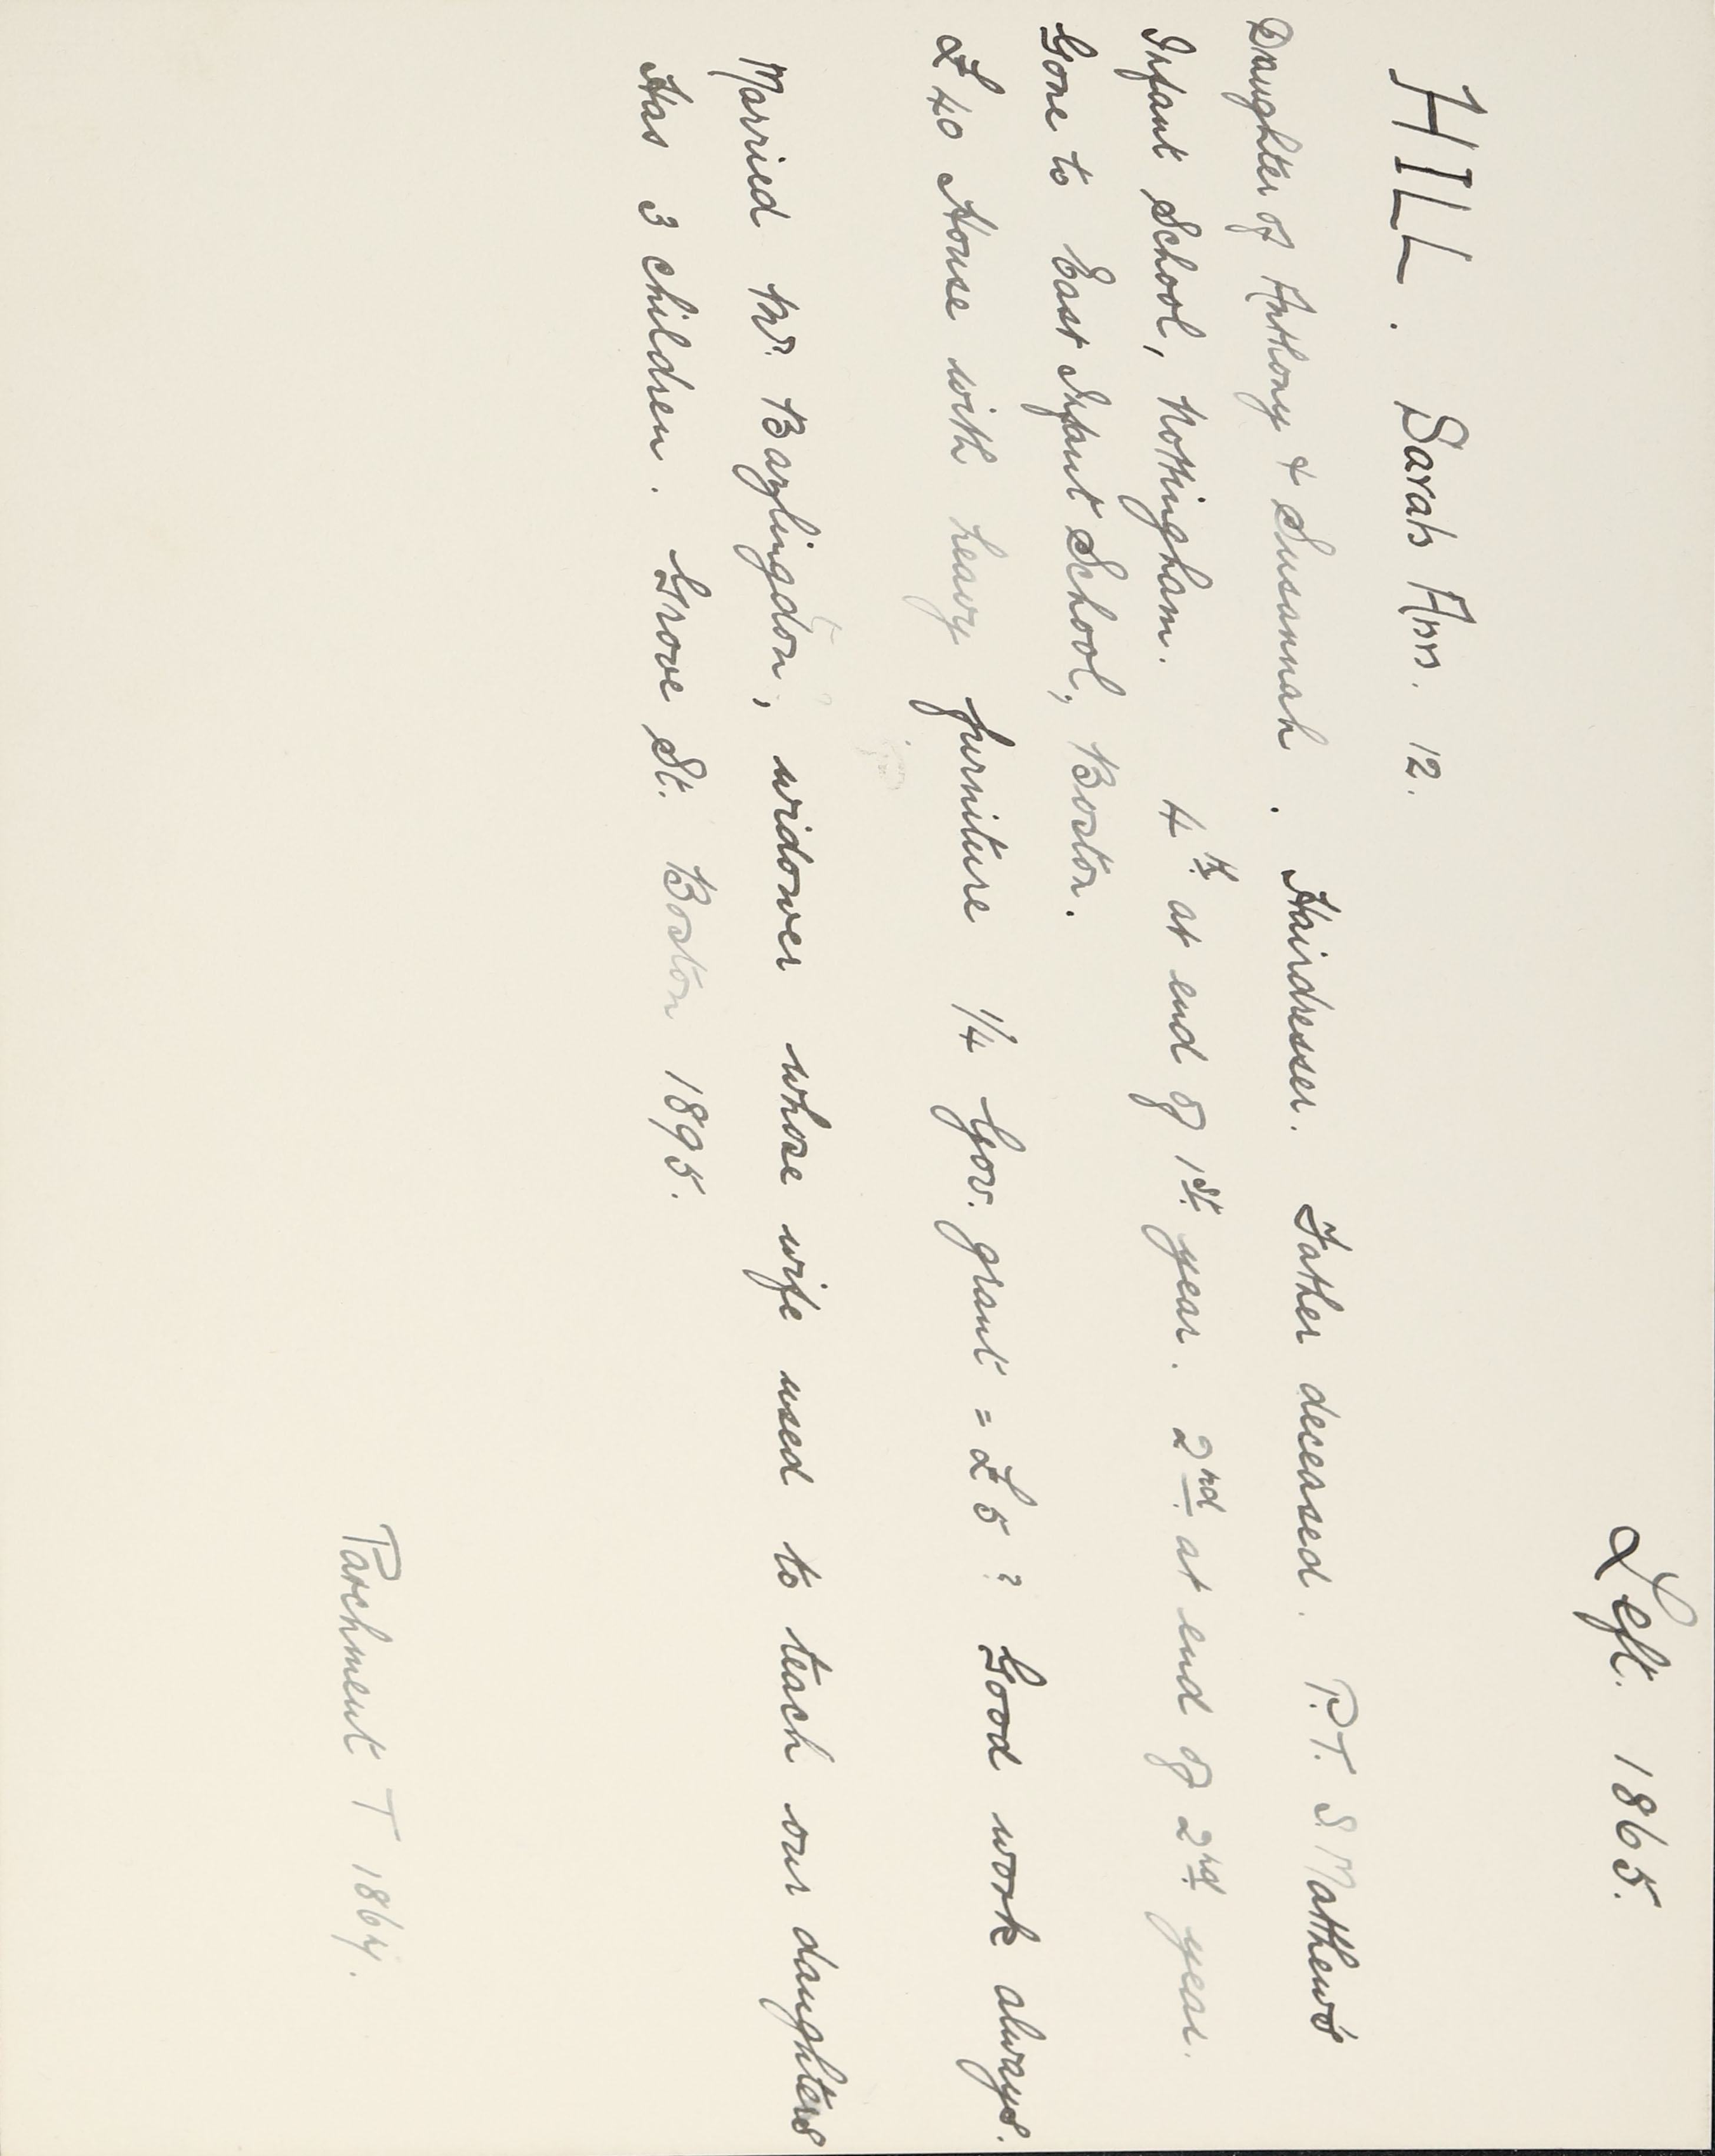 Left. 1865.
HILL. Sarah Ann. 12.
Daughter of Anthony & Susannah. Hairdresser. Father deceased. P.T. S. Matthew's
Infant School, Nottingham. 4th. at end of 1st. year. 2nd at end of 2nd year.
Gone to East Infant School, Boston.
£40 House with heavy furniture 1/4 Gov. grant = £5? Good work always.
Married Mr. Bazlingdon, widower whose wife used to teach our daughters
Has 3 children. Grove St. Boston 1895.
Parchment T 1867.